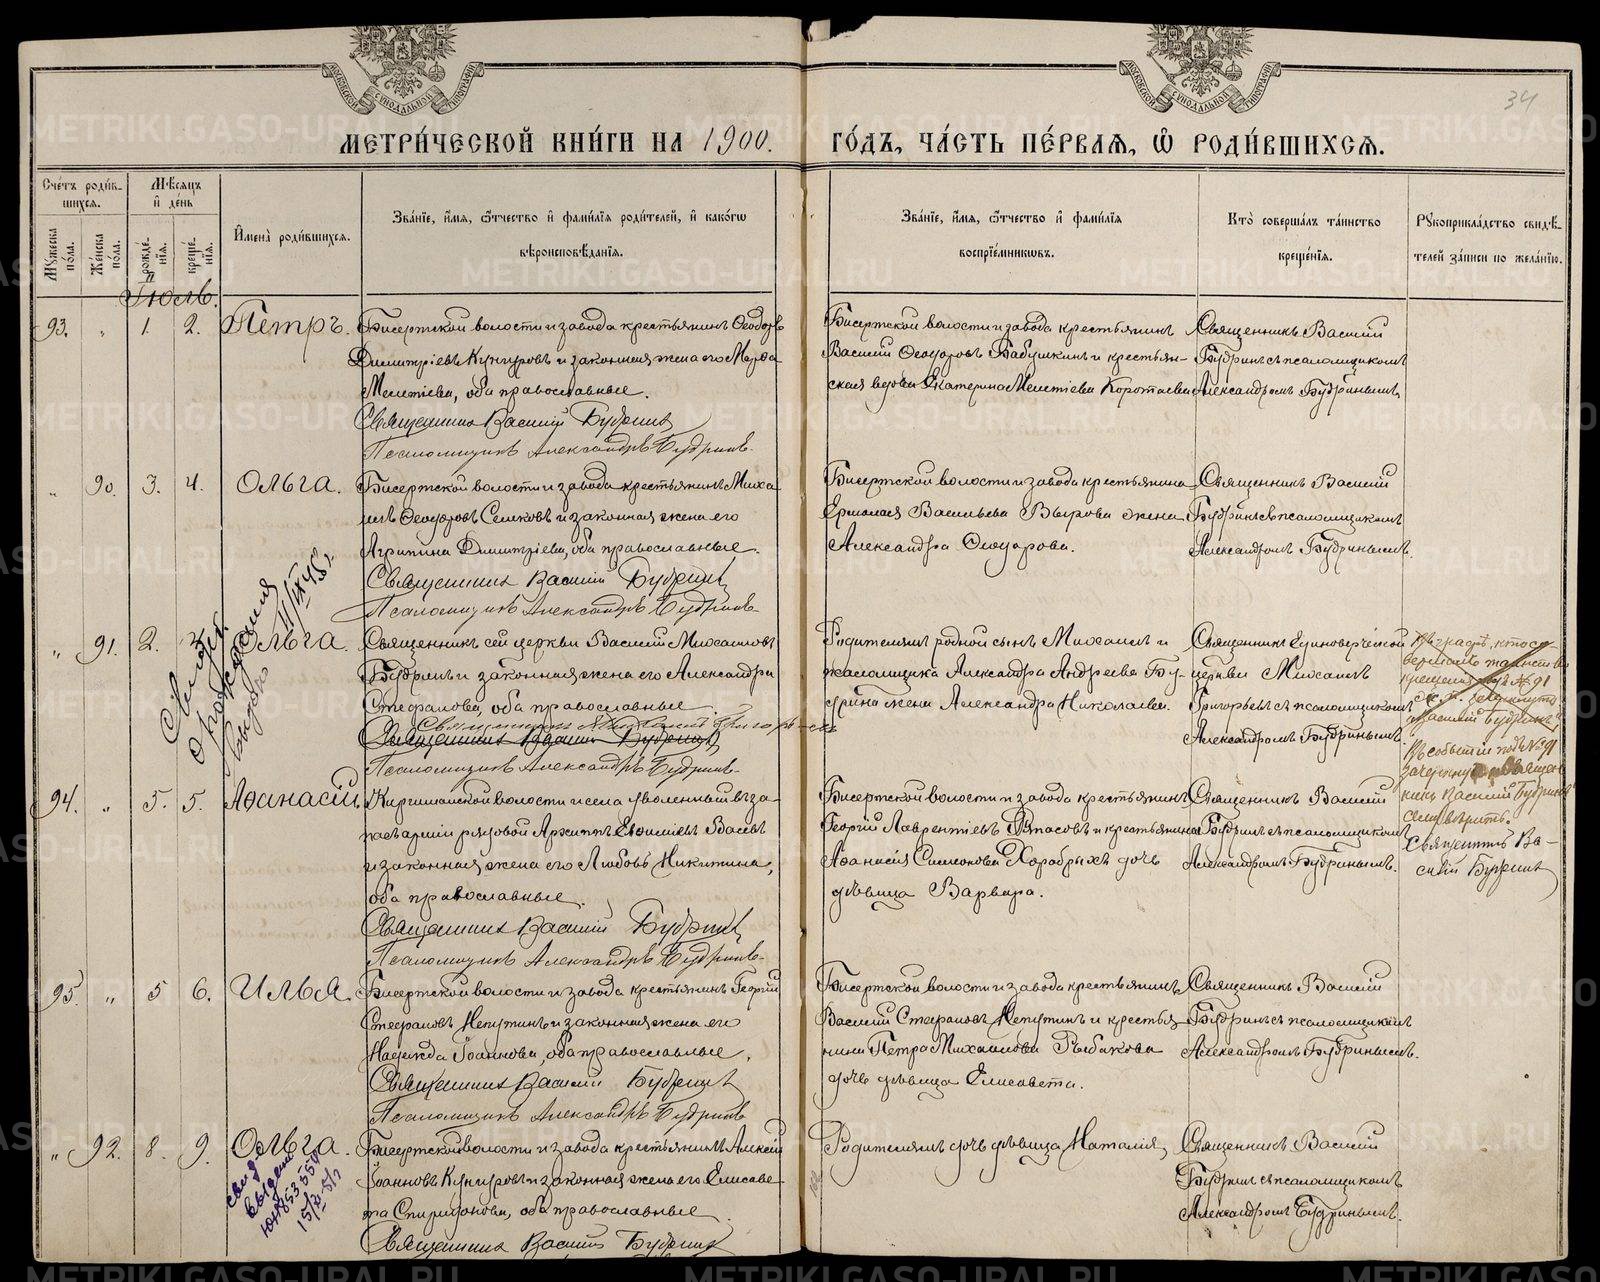 МЕТРИ́ЧЕСКОЙ КНИ́ГИ НА 1900.
ГО́ДЪ, ЧА́СТЬ ПЕ́РВАѦ, Ѡ РОДИ́ВШИХСѦ.
34
Сче́тъ роди́в-
шихся.
Мѣсяцъ
и де́нь
Му́жеска по́ла.
Же́нска по́ла.
рожде́-
нїя.
креще́-
нїя.
И́мена̀ роди́вшихся.
Зва́нїе, и́мя, ѻ́тчество и фами́лїя роди́телей, и како́гѡ
вѣроисповѣ́данїя.
Зва́нїе, и́мя, ѻ́тчество и фами́лїя
воспрїе́мникѡвъ.
Кто̀ соверша́лъ та́инство
креще́нїя.
Рꙋкоприкла́дство свидѣ́-
телей за́писи по жела́нїю.
Іюль.
93. „ 1. 2. Петръ.
Бисертской волости и завода крестьянинъ Ѳеодоръ
Димитріевъ Кунгуровъ и законная жена его Марѳа
Мелетіева, оба православные.
Священникъ Василій Будринъ
Псаломщикъ Александръ Будринъ.
Бисертской волости и завода крестьянинъ
Василій Ѳеодоровъ Бабушкинъ и крестьян-
ская вдова Екатерина Мелетіева Коротаева
Священникъ Василій
Будринъ съ псаломщикомъ
Александромъ Будринымъ.
„ 90. 3. 4. Ольга.
Бисертской волости и завода крестьянинъ Миха
илъ Ѳеодоровъ Селковъ и законная жена его
Агрипина Димитріева, оба православные.
Священникъ Василій Будринъ
Псаломщикъ Александръ Будринъ
Бисертской волости и завода крестьянина
Ермолая Васильева Вырова жена
Александра Ѳеодорова.
Священникъ Василій
Будринъ съ псаломщикомъ
Александромъ Будринымъ.
„ 91. 2. Ольга.
рождения
Священникъ сей церкви Василій Михаиловъ
Будринъ и законная жена его Александра
Стефанова, оба православные.
Священникъ Михаилъ Григорьевъ
Священникъ Василій Будринъ
Псаломщикъ Александръ Будринъ
Родителямъ родной сынъ Михаилъ и
псаломщика Александра Андреева Бу-
дрина жена Александра Николаева.
Священникъ Единоверческой
церкви Михаилъ
Григорьевъ съ псаломщикомъ
Александромъ Будринымъ
Въ графѣ, кто со-
вершалъ таинство
крещенія подъ № 91
Василій Будринъ
Въ событіи подъ № 91
зачеркнуто священ
никъ Василій Будринъ
сему вѣрить.
Священникъ Ва-
силій Будринъ
94. „ 5. 5. Аѳанасій.
Киргишанской волости и села уволенный въ за-
пасъ арміи рядовой Архиппъ Евѳиміевъ Васевъ
и законная жена его Любовь Никитина,
оба православные.
Священникъ Василій Будринъ
Псаломщикъ Александръ Будринъ
Бисертской волости и завода крестьянинъ
Георгій Лаврентіевъ и крестьянина
Аѳанасія Симонова Храбрыхъ дочь
дѣвица Варвара.
Священникъ Василій
Будринъ съ псаломщикомъ
Александромъ Будринымъ.
95. „ 5 6. Илья.
Бисертской волости и завода крестьянинъ Георгій
Стефановъ Непутинъ и законная жена его
Надежда Іоаннова, оба православные.
Священникъ Василій Будринъ
Псаломщикъ Александръ Будринъ
Бисертской волости и завода крестьянинъ
Василій Стефановъ Непутинъ и крестья-
нина Петра Михаилова Рыбакова
дочь дѣвица Елисавета.
Священникъ Василій
Будринъ съ псаломщикомъ
Александромъ Будринымъ.
„ 92. 8. 9. Ольга.
Бисертской волости и завода крестьянинъ Алексій
Іоанновъ Кунгуровъ и законная жена его Елисаве-
та Спиридонова, оба православные
Священникъ Василій Будринъ
Родителямъ дочь дѣвица Наталія,
Священникъ Василій
Будринъ съ псаломщикомъ
Александромъ Будринымъ.
METRIKI.GASO-URAL.RU